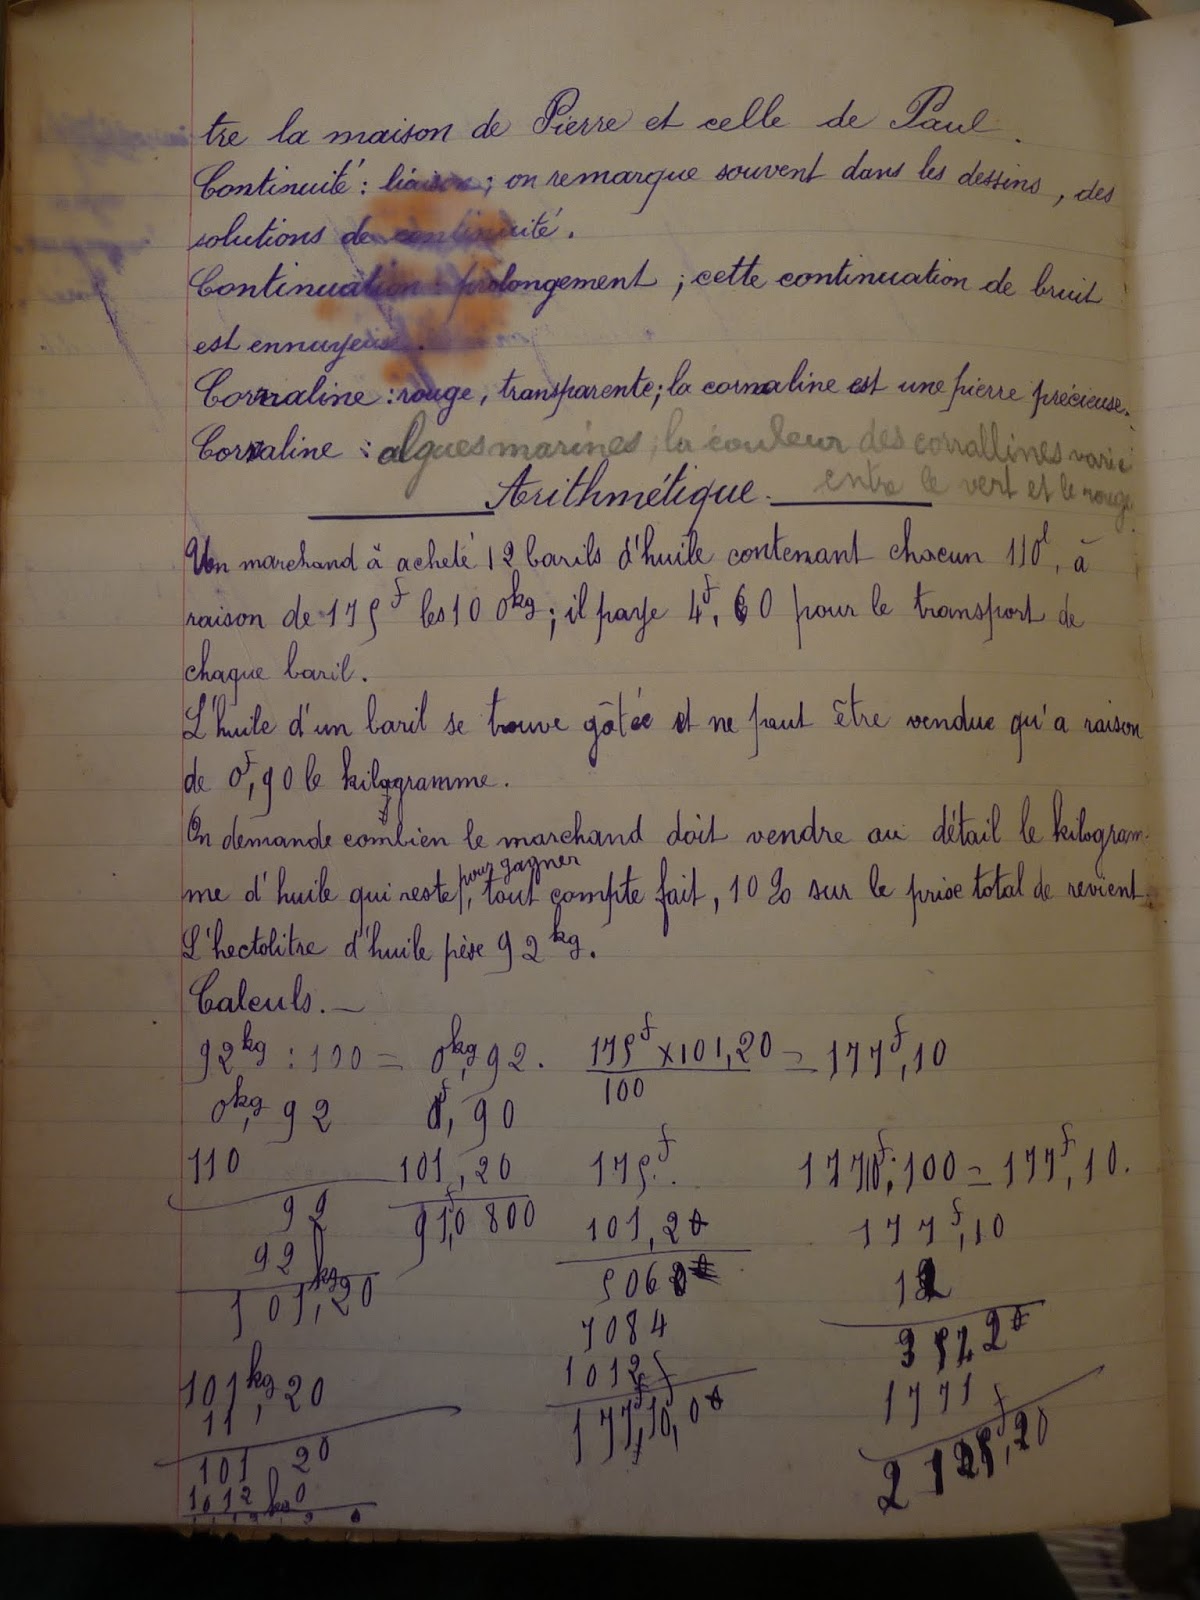 tre la maison de Pierre et celle de Paul.
Continuité : liaison ; on remarque souvent dans les dessins, des
solutions de continuité.
Continuation : prolongement ; cette continuation de bruit
est ennuyeuse.
Cornaline : rouge, transparente ; la cornaline est une pierre précieuse.
Corraline : algues marines, la couleur des corrallines varie
entre le vert et le rouge.
Arithmétique.
Un marchand à acheté 12 barils d'huile contenant chacun 110l, à
raison de 175f les 100kg ; il paye 4f,60 pour le transport de
chaque baril.
L'huile d'un baril se trouve gâtée et ne peut être vendue qu'a raison
de 0f,90 le kilogramme.
On demande combien le marchand doit vendre au détail le kilogram-
me d'huile qui reste, pour gagner tout compte fait, 10 % sur le prix total de revient.
L'hectolitre d'huile pèse 92kg.
Calculs. —
92kg : 100 = 0kg,92. 175f × 101,20 = 177f,10
100
0kg,92 0f,90
110 101,20 175f. 1770f : 100 = 177f,10.
92 91f,0800 101,20 177f,10
92 5060 12
101kg,20 7084 35420
101kg,20 1012 1771
11 177f,10,00 2125f,20
101 20
1012 0